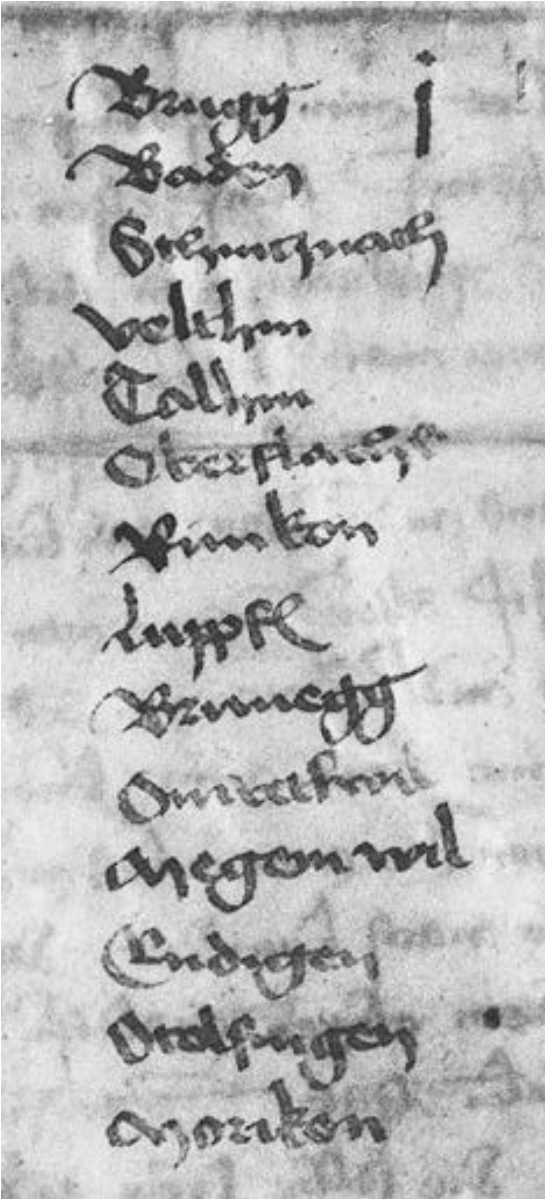 Brugg j
Baden
Schintznach
velthin
Talhin
Oberflachs
Rinikon
Luppff
Brunegg
Megenwil
Endigen
Otolfingen
Moriken